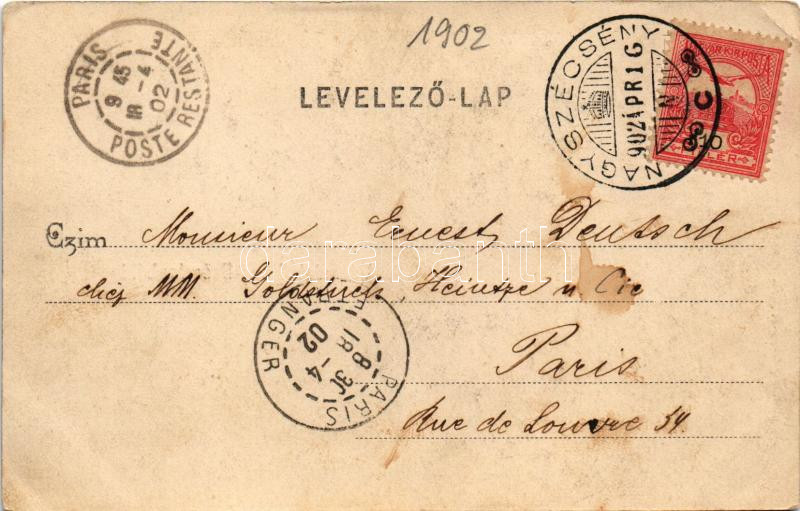 1902
PARIS
9 45
18 -4
02
POSTE RESTANTE
LEVELEZŐ-LAP
NAGYSZÉCSÉNY
902 ÁPR 16
N
C
MAGYAR KIR. POSTA
10
FILLÉR
Czim Monsieur Ernest Deutsch
chez MM. Goldstück, Heintze u. Cie
PARIS
8 30
18 -4
02
ETRANGER
Paris
Rue de Louvre 54.
darabanth